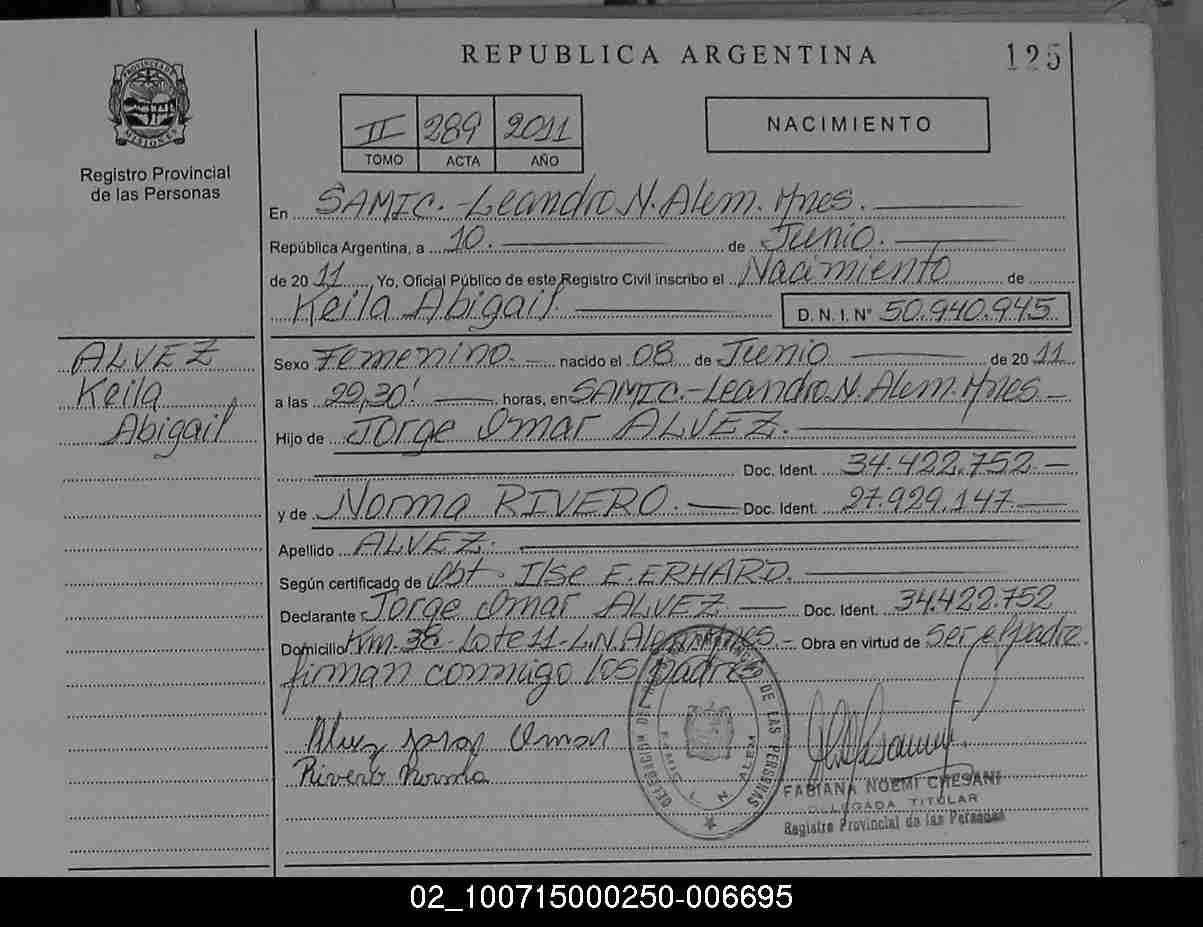 REPUBLICA ARGENTINA
125
PROVINCIA DE MISIONES
Registro Provincial
de las Personas
II 289 2011
TOMO ACTA AÑO
NACIMIENTO
En SAMIC.-Leandro N. Alem. Mnes.
República Argentina, a 10. de Junio.
de 2011, Yo, Oficial Público de este Registro Civil inscribo el Nacimiento de
Keila Abigail. D. N. I. Nº 50.940.945
ALVEZ
Keila
Abigail
Sexo Femenino. nacido el 08 de Junio de 2011
a las 22,30' horas, en SAMIC.-Leandro N. Alem. Mnes
Hijo de Jorge Omar ALVEZ.
Doc. Ident. 34.422.752
y de Norma RIVERO. Doc. Ident. 27.929.147
Apellido ALVEZ.
Según certificado de Obt. Ilse E. ERHARD.
Declarante Jorge Omar ALVEZ Doc. Ident. 34.422.752
Domicilio Km. 38-Lote 11-L.N. Alem. Mnes. Obra en virtud de Ser el padre.
firman conmigo los padres
Alvez Jorge Omar
Rivero Norma
DE LAS PERSONAS
DELEGACION
L. N. ALEM
FABIANA NOEMI CHESANI
DELEGADA TITULAR
Registro Provincial de las Personas
02_100715000250-006695